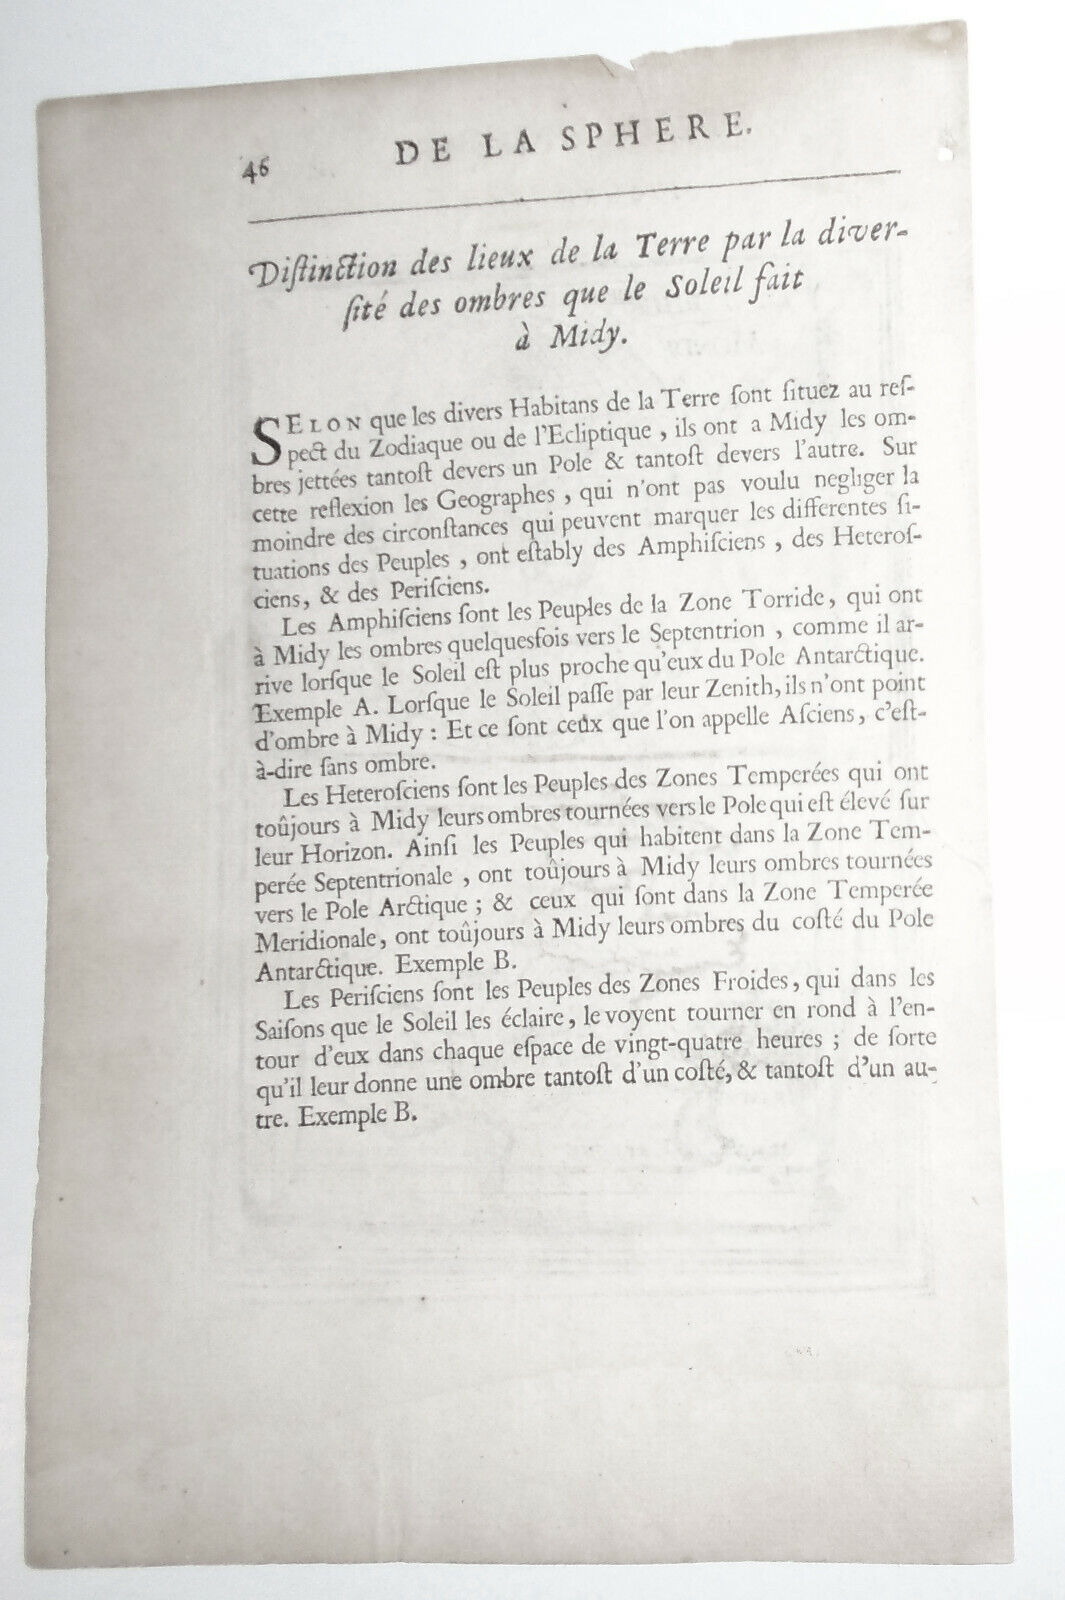 46
DE LA SPHERE.
Diſtinction des lieux de la Terre par la diver-
ſité des ombres que le Soleil fait
à Midy.
SELON que les divers Habitans de la Terre ſont ſituez au reſ-
pect du Zodiaque ou de l'Ecliptique, ils ont a Midy les om-
bres jettées tantoſt devers un Pole & tantoſt devers l'autre. Sur
cette reflexion les Geographes, qui n'ont pas voulu negliger la
moindre des circonſtances qui peuvent marquer les differentes ſi-
tuations des Peuples, ont eſtably des Amphiſciens, des Heteroſ-
ciens, & des Periſciens.
Les Amphiſciens ſont les Peuples de la Zone Torride, qui ont
à Midy les ombres quelquesfois vers le Septentrion, comme il ar-
rive lorſque le Soleil eſt plus proche qu'eux du Pole Antarctique.
Exemple A. Lorſque le Soleil paſſe par leur Zenith, ils n'ont point
d'ombre à Midy : Et ce ſont ceux que l'on appelle Aſciens, c'eſt-
à-dire ſans ombre.
Les Heteroſciens ſont les Peuples des Zones Temperées qui ont
toûjours à Midy leurs ombres tournées vers le Pole qui eſt élevé ſur
leur Horizon. Ainſi les Peuples qui habitent dans la Zone Tem-
perée Septentrionale, ont toûjours à Midy leurs ombres tournées
vers le Pole Arctique ; & ceux qui ſont dans la Zone Temperée
Meridionale, ont toûjours à Midy leurs ombres du coſté du Pole
Antarctique. Exemple B.
Les Periſciens ſont les Peuples des Zones Froides, qui dans les
Saiſons que le Soleil les éclaire, le voyent tourner en rond à l'en-
tour d'eux dans chaque eſpace de vingt-quatre heures ; de ſorte
qu'il leur donne une ombre tantoſt d'un coſté, & tantoſt d'un au-
tre. Exemple B.